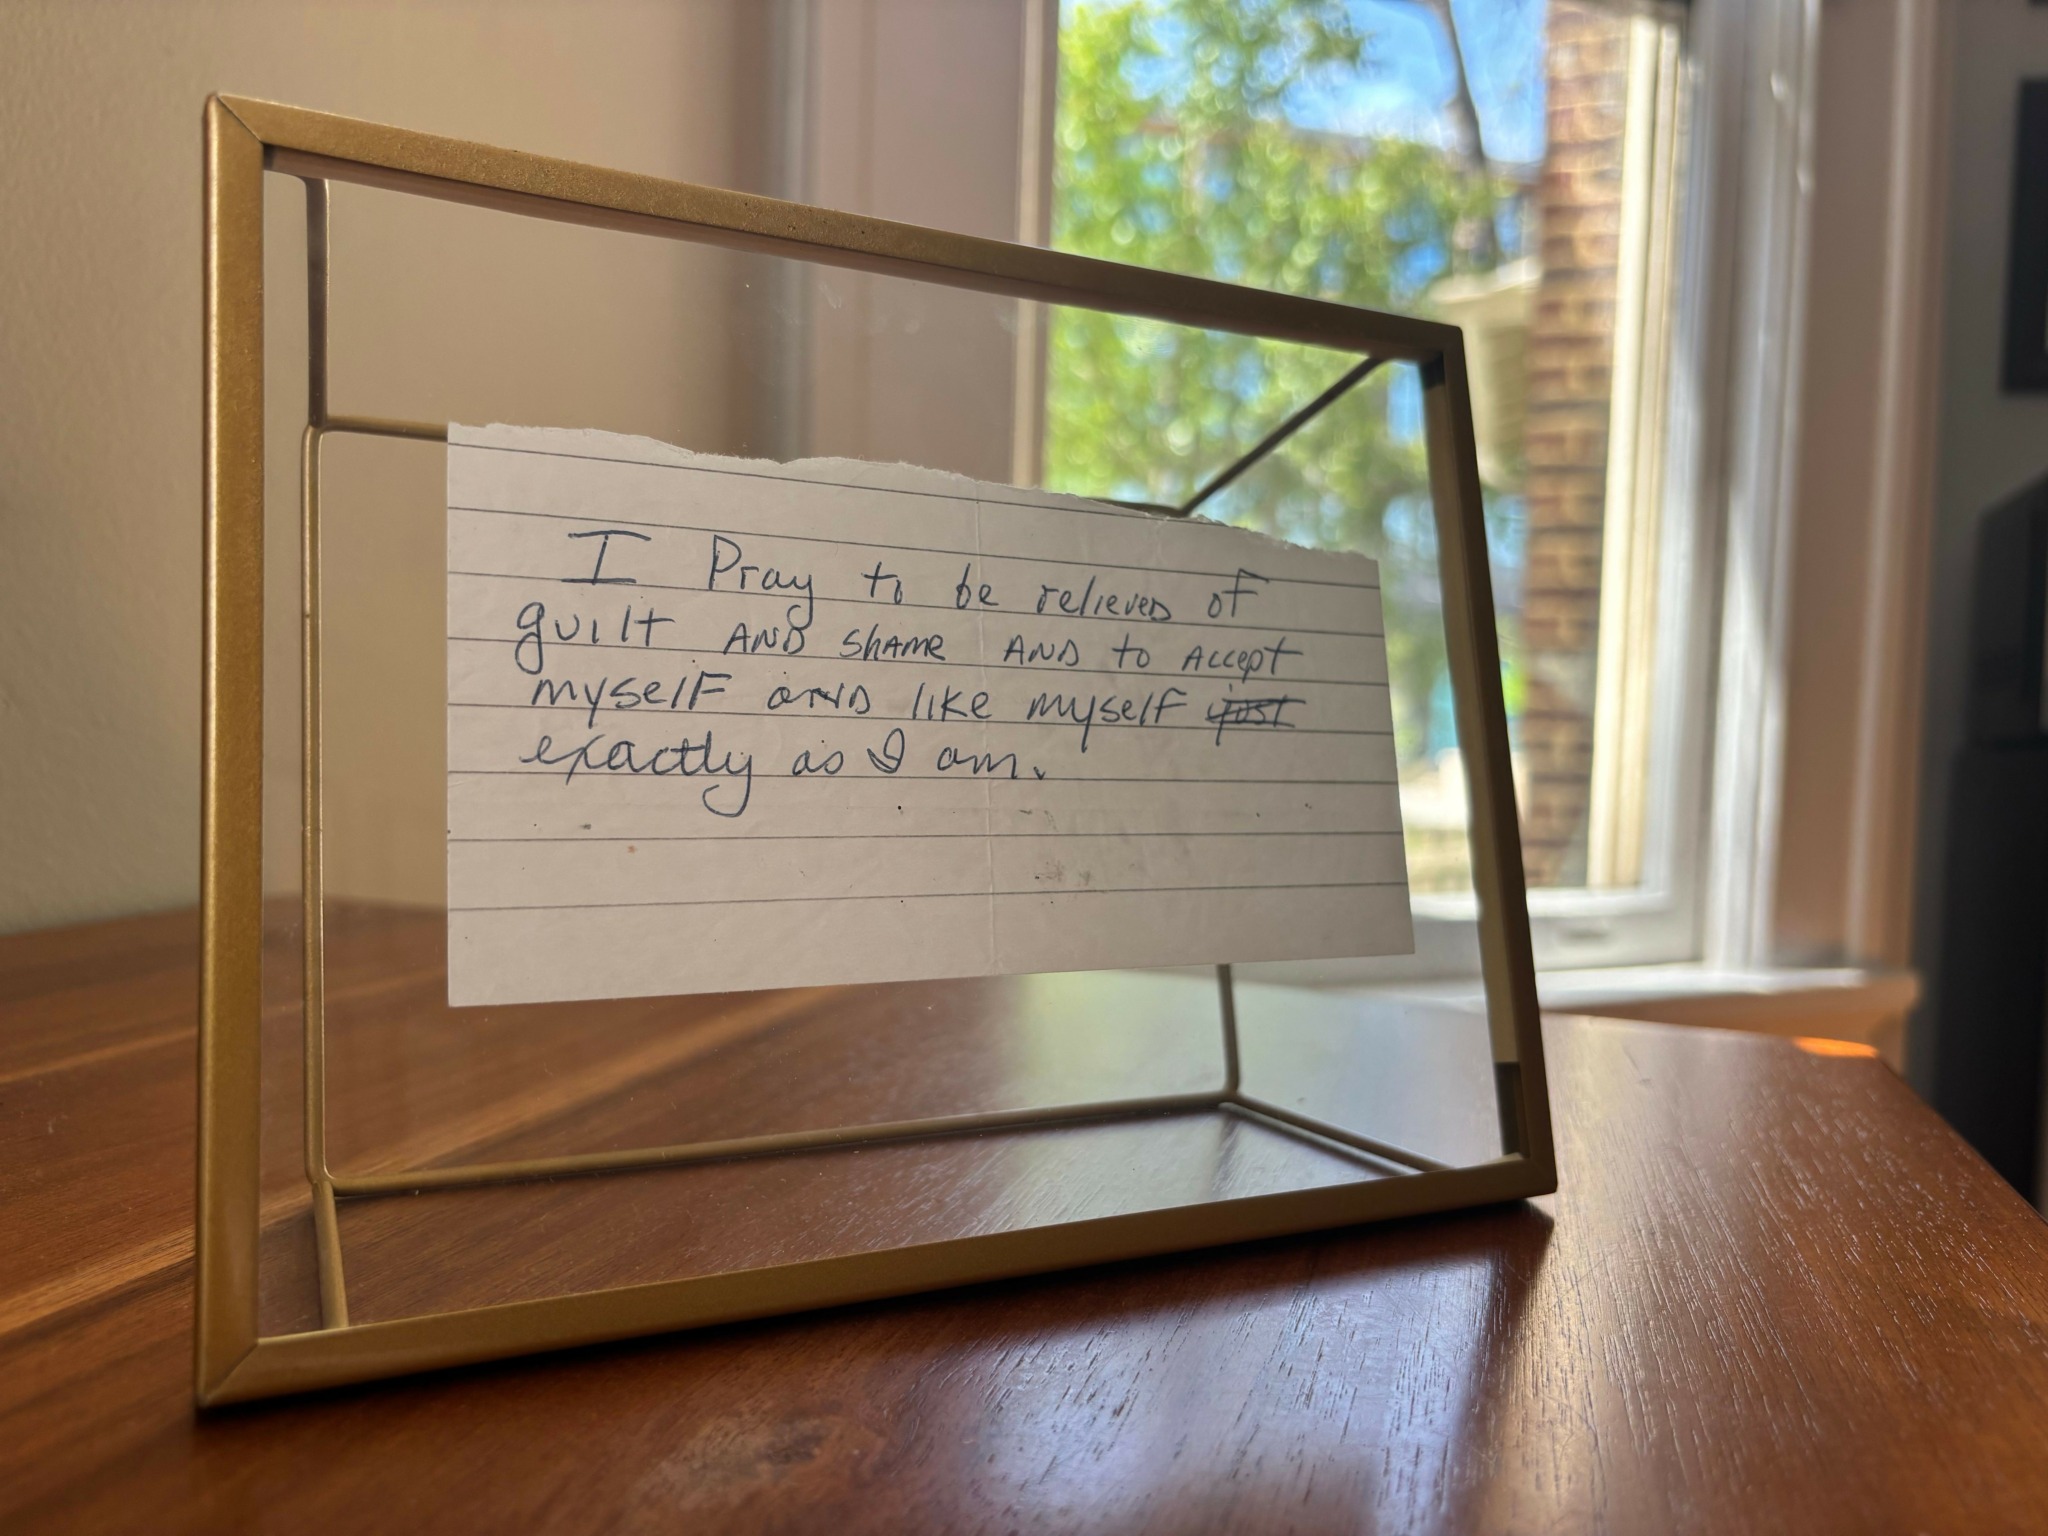 I Pray to be relieveD of
guilt AND shAME AND to Accept
myself anD liKe myself just
exactly as I am.